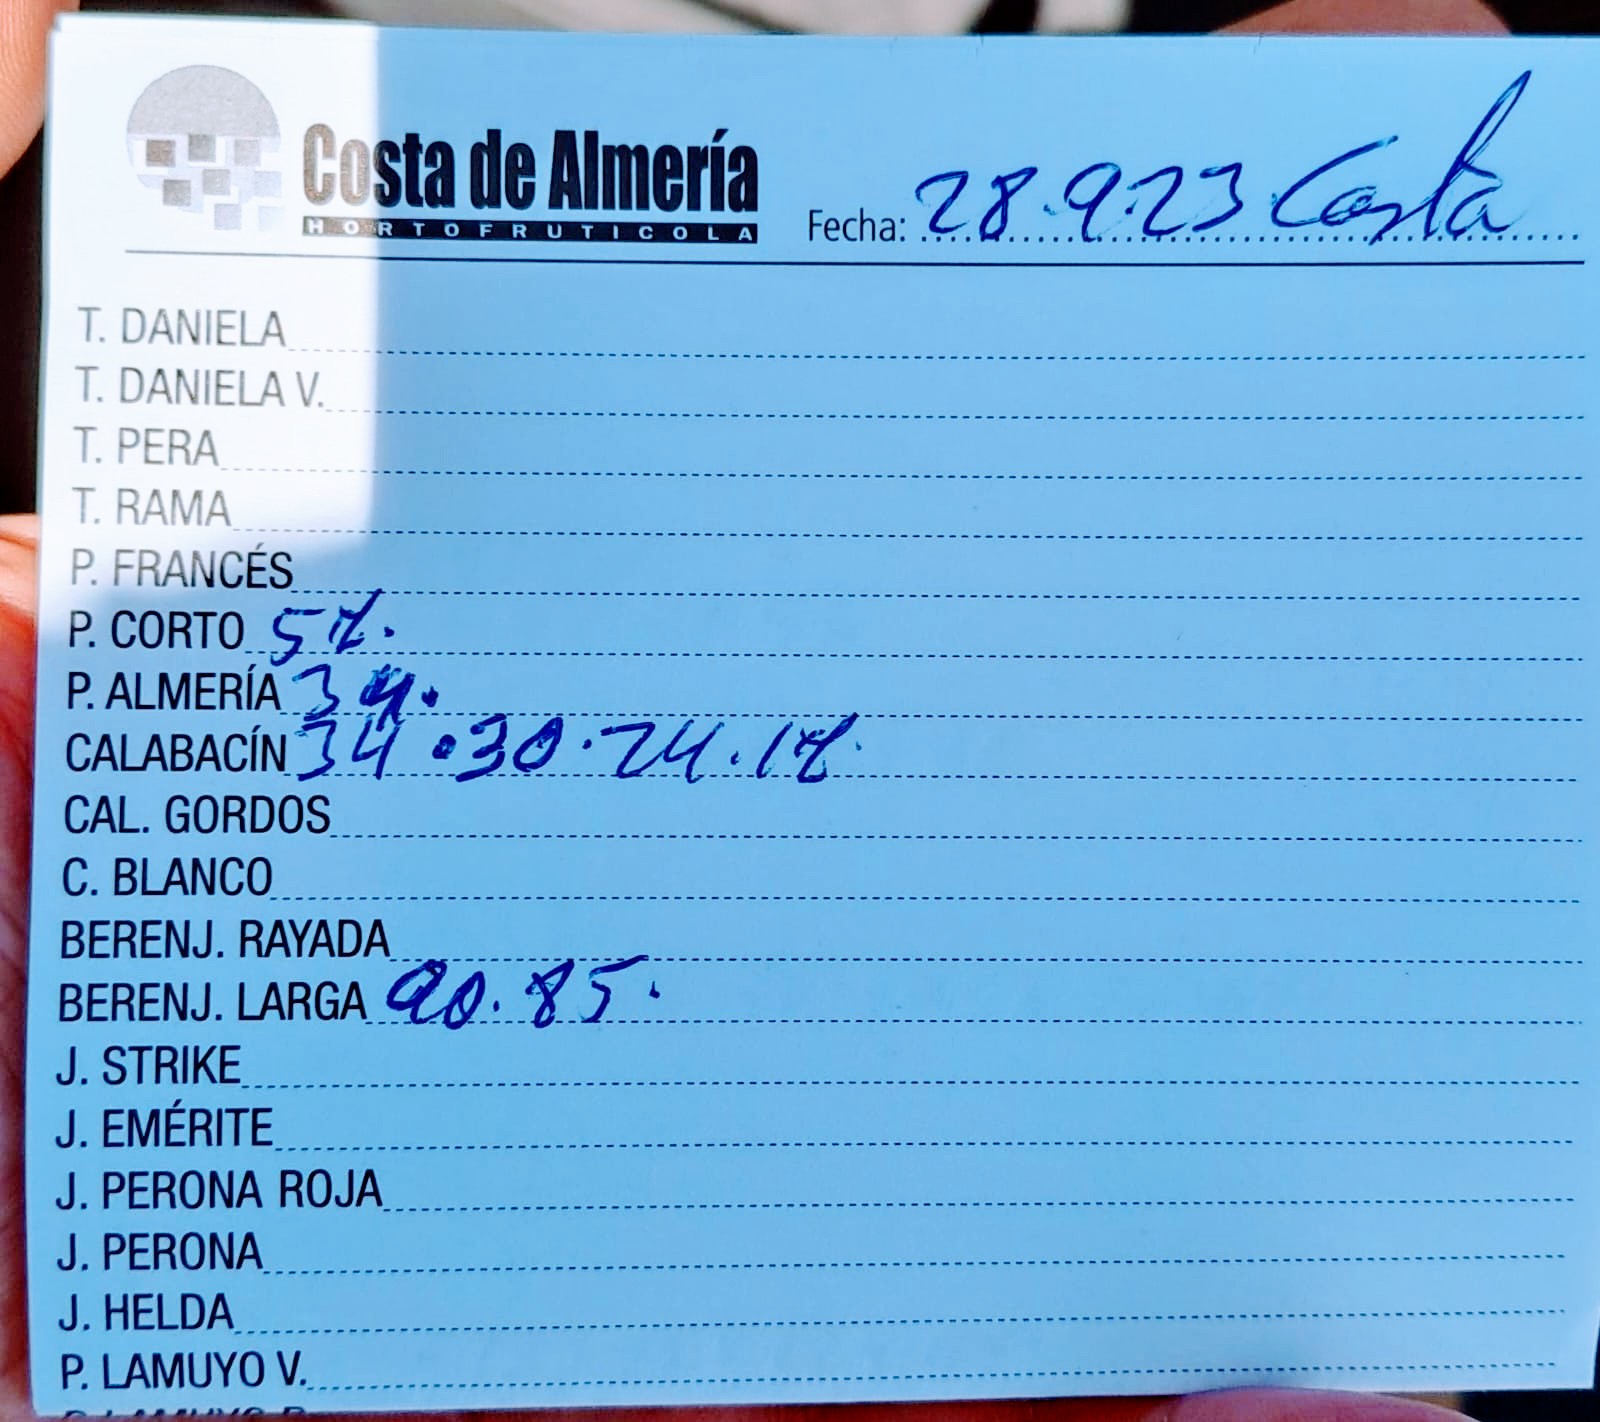 Costa de Almería
HORTOFRUTICOLA
Fecha: 28.9.23 Costa
T. DANIELA
T. DANIELA V.
T. PERA
T. RAMA
P. FRANCÉS
P. CORTO 57.
P. ALMERÍA 39.
CALABACÍN 34.30.24.17.
CAL. GORDOS
C. BLANCO
BERENJ. RAYADA
BERENJ. LARGA 90.85.
J. STRIKE
J. EMÉRITE
J. PERONA ROJA
J. PERONA
J. HELDA
P. LAMUYO V.